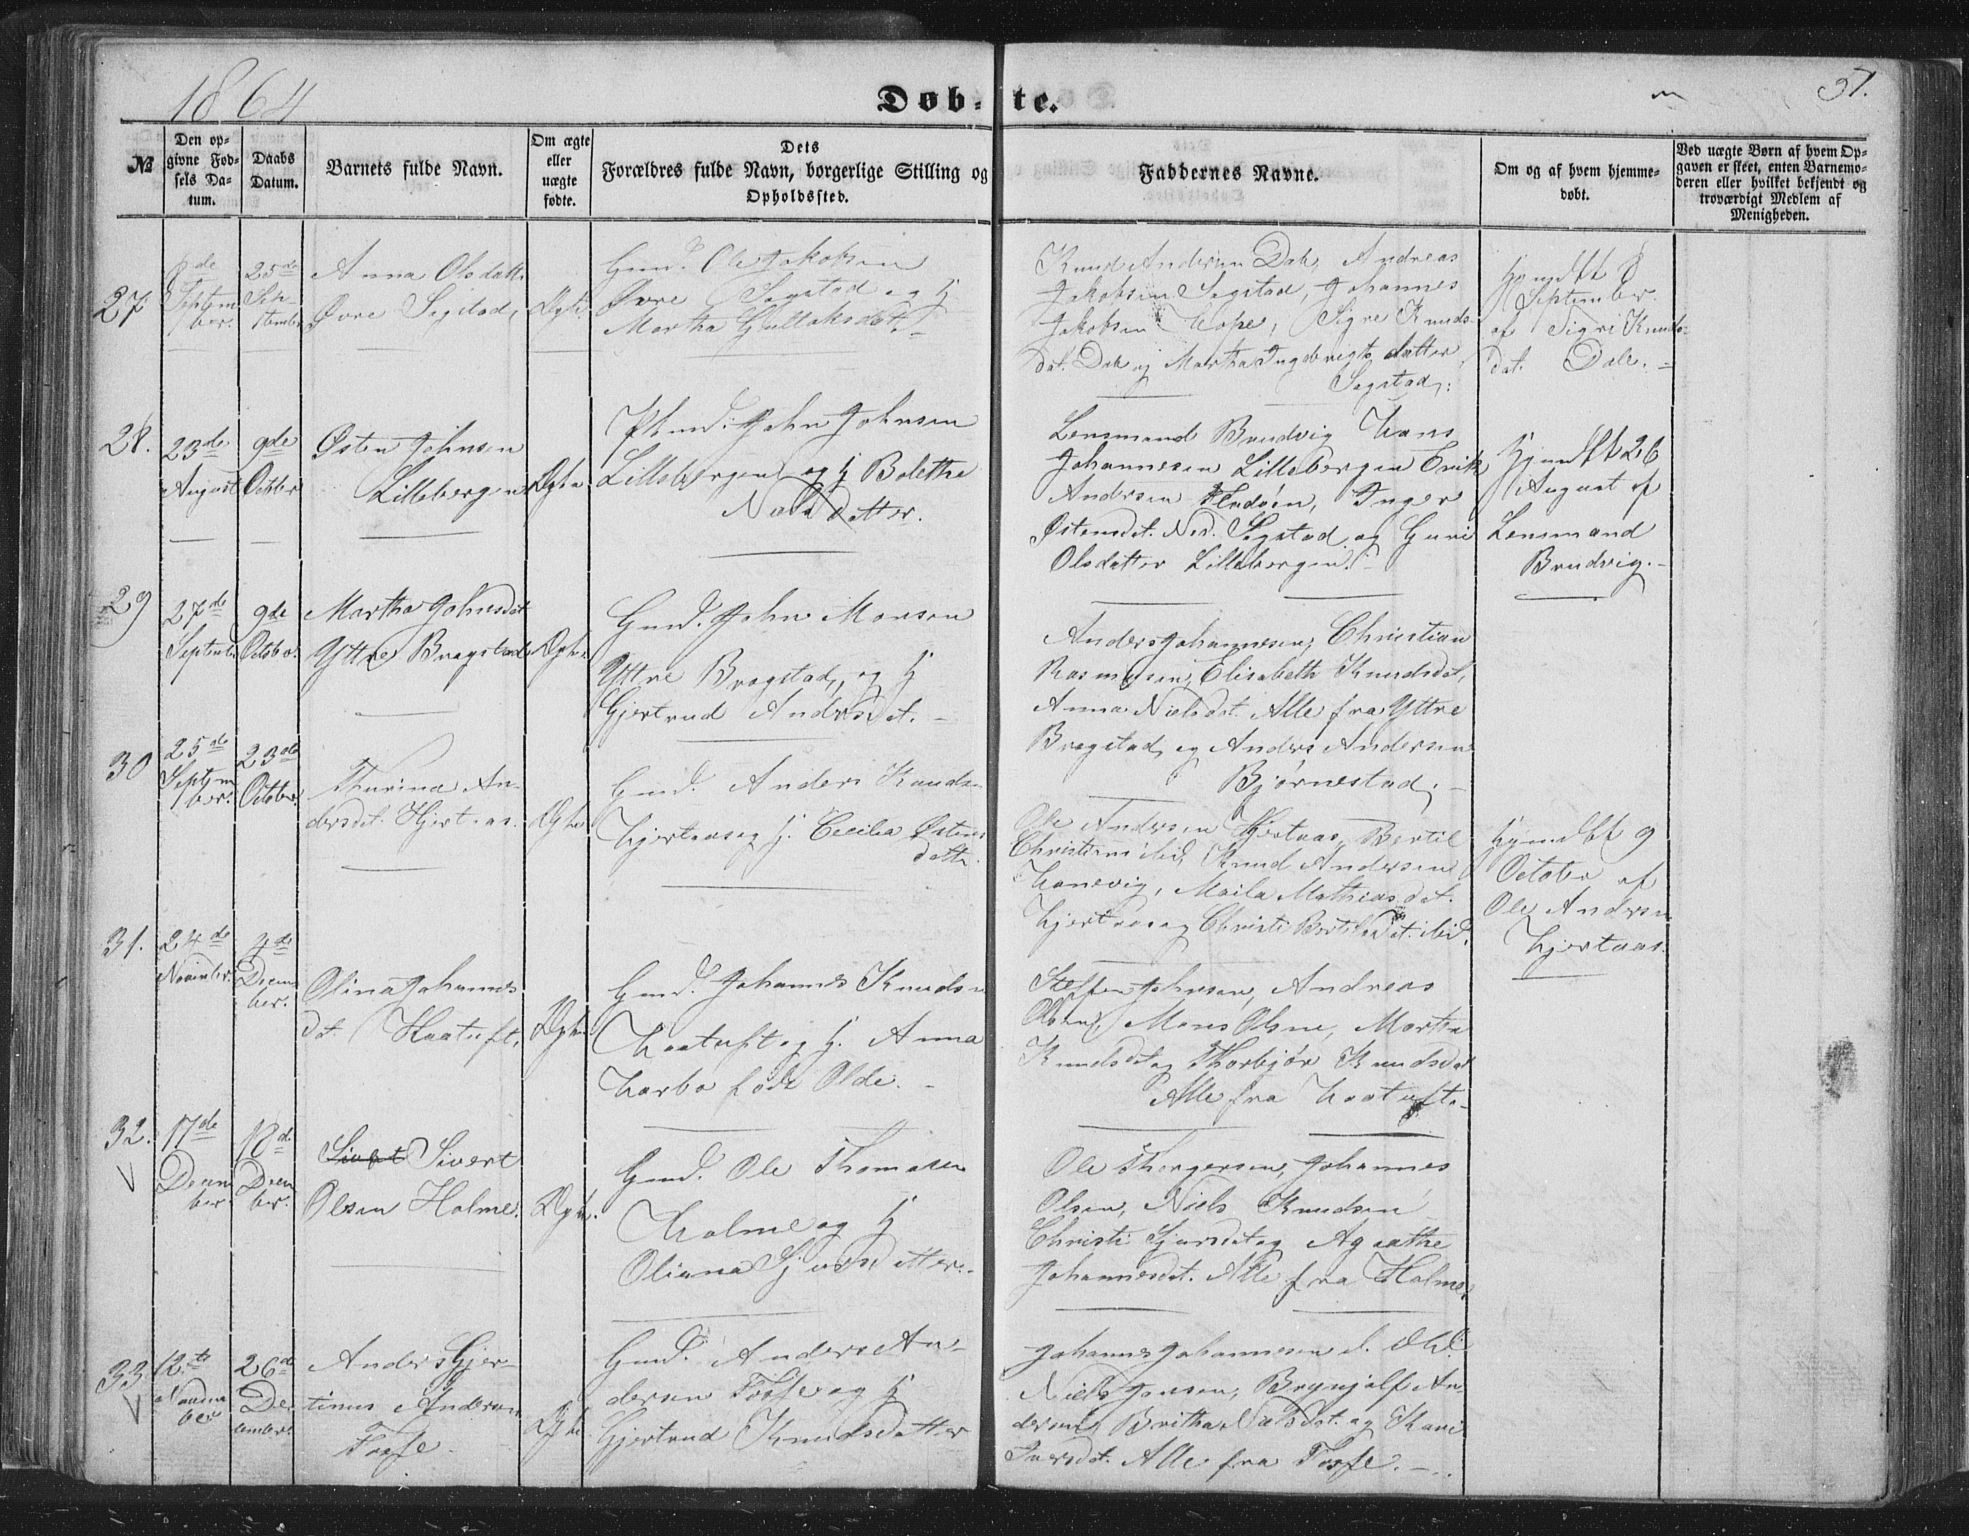 1864
Døbte.
37.
№
Den opgivne Fødsels Datum.
Daabs Datum.
Barnets fulde Navn.
Om ægte eller uægte fødte.
Dets Forældres fulde Navn, borgerlige Stilling og Opholdssted.
Faddernes Navne.
Om og af hvem hjemmedøbt.
Ved uægte Børn af hvem Opgaven er skeet, enten Barnemoderen eller hvilket bekjendt og troværdigt Medlem af Menigheden.
27.
8de
Septem
ber.
25de
Sep-
tember
Anna Olsdatt.
Øvre Segstad,
Ægte.
Gmd. Ole Jakobsen
Øvre Segstad og H
Martha Gullaksdat.
Knud Andersen Dale, Andreas
Jakobsen Segstad, Johannes
Jakobsen Hope, Sigre Knuds-
dat. Dale og Martha Ingebrigtsdatter
Segstad.
Hjmdbt 8
September
af Sigri Knuds-
dat. Dale.
28.
23de
August
9de
Octbr
Østen Johnsen
Lillebergen
Ægte
Plmd. John Johnsen
Lillebergen og H Bolethe
Nelsdatter.
Lensmand Brudvig Hans
Johannesen Lillebergen Erik
Andersen Hadøen, Inger
Østensdt. Ned. Segstad og Guri
Olsdatter Lillebergen.
Hjmdbt 26
August af
Lensmand
Brudvig.
29
27de
Septemb.
9de
Octobr.
Martha Johnsdat
Yttre Bragstad
Ægte
Gmd. John Monsen
Yttre Bragstad, og H
Gjertrud Andersdat.
Anders Johannesen, Christian
Rasmussen, Elisabeth Knudsdat,
Anna Nielsdat. Alle fra Yttre
Bragstad og Anders Andersen
Bjørnestad,
30
25de
Septem
ber.
23de
October.
Thurina An-
dersdat. Hjertaas.
Ægte
Gmd. Anders Knuds-
Hjertaas og H. Cecilia Østens
datte.
Ole Andersen Hjertaas, Bertil
Christians ibid, Knud Andersen
Hanevig, Maila Mathiasdat.
Hjertaas og Christi Bertelsdat. ibid.
Hjmdbt 9
October af
Ole Andersen
Hjertaas.
31.
24de
Novimber.
4de
Decem
ber.
Olina Johannes
dt. Haatuft,
Ægte
Gmd. Johannes Knudsn
Haatuft og H. Anna
Harbo født Olde.
Steffen Johnsen, Andreas
Olsen, Mons Olsen, Martha
Knudsdt og Thorbjør Knudsdat
Alle fra Haatuft.
32.
17de
Decem
ber.
18de
Decem
ber.
Sivert Sivert
Olsen Holme.
Ægte.
Gmd. Ole Thomasen
Holme og H
Oliana Sjursdatter.
Ole Thorgersen, Johannes
Olsen, Niels Knudsen
Christi Sjursdt og Agathe
Johannesdt. Alle fra Holme,
33
12te
Novem
ber
26de
De-
cember
Anders Gjer-
tinus Andersen
Fosse.
Ægte
Gmd. Anders An-
dersen Fosse og H
Gjertrud Knudsdatter
Johannes Johannesen
Niels Jonsen, Brynjolf An-
dersen, Britha Nelsdt. og Kari
Iversdt. Alle fra Fosse.